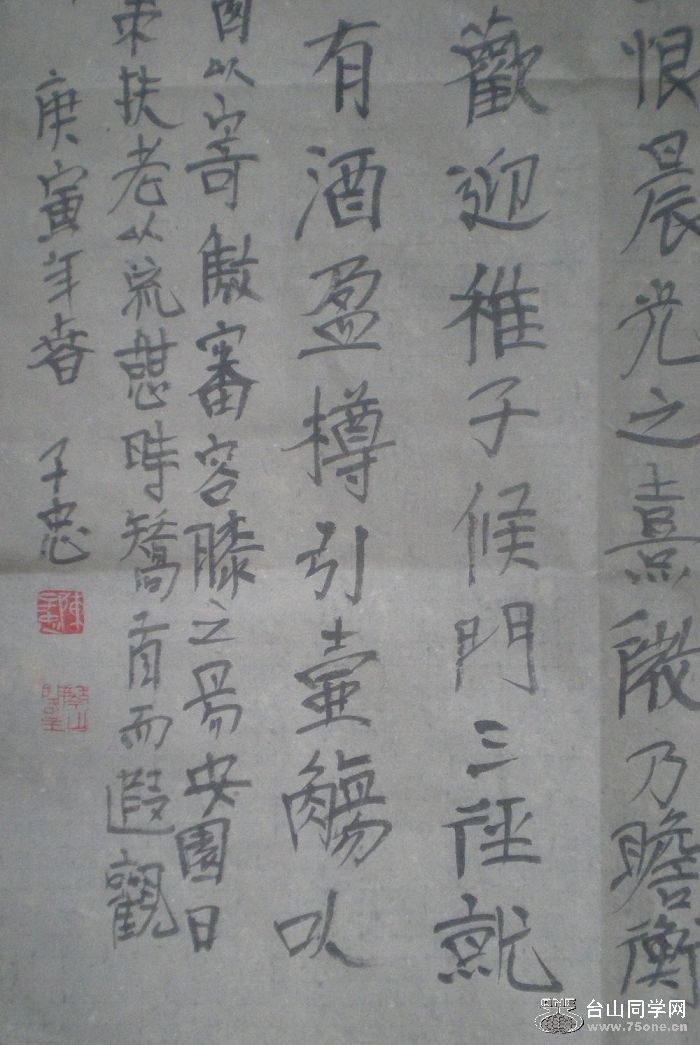 恨晨光之熹微乃瞻衡
歡迎稚子候門三徑就
有酒盈樽引壺觴以
窗以寄傲審容膝之易安園日
策扶老以流憩時矯首而遐觀
庚寅年春 子忠
陳子忠
ONE 台山同学网
www.75one.com